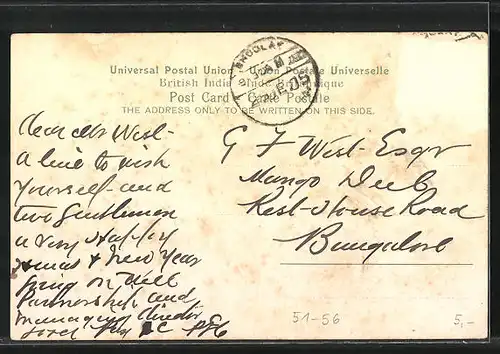 Universal Postal Union - Union Postale Universelle
British India - Inde Britannique
Post Card - Carte Postale
THE ADDRESS ONLY TO BE WRITTEN ON THIS SIDE.
Dear Mr West-
a line to wish
yourself and
two Gentlemen
a very Happy
Xmas & New Year
from
Partnership and
managing director
G F West Esqr
Mango
Rest-House Road
Bangalore
51-56
5,-